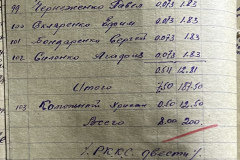 99 Чернеженко Павел 0.073 1.83
100 Скляренко Ефим 0.073 1.83
101 Бондаренко Сергей 0.073 1.83
102 0.073 1.83
0.511 12.81
Итого 7.50 187.50
103 0.50 12.50
Всего 8.00 200.
/ РККС двести /